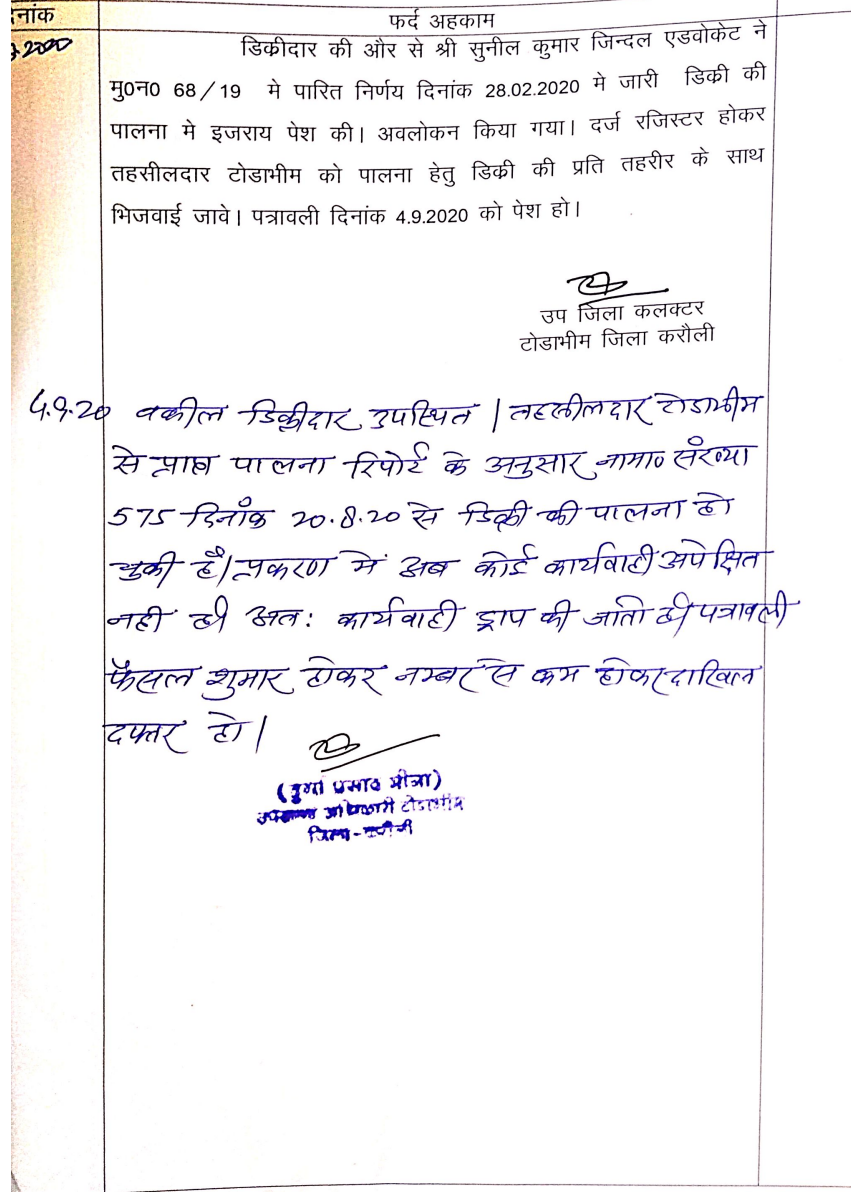 नांक
फर्द अहकाम
2020
डिक्रीदार की और से श्री सुनील कुमार जिन्दल एडवोकेट ने
मु0न0 68/19 मे पारित निर्णय दिनांक 28.02.2020 मे जारी डिक्री की
पालना मे इजराय पेश की। अवलोकन किया गया। दर्ज रजिस्टर होकर
तहसीलदार टोडाभीम को पालना हेतु डिक्री की प्रति तहरीर के साथ
भिजवाई जावे। पत्रावली दिनांक 4.9.2020 को पेश हो।
उप जिला कलक्टर
टोडाभीम जिला करौली
4.9.20 वकील डिक्रीदार उपस्थित। तहसीलदार टोडाभीम
से प्राप्त पालना रिपोर्ट के अनुसार नामा० संख्या
575 दिनाँक 20.8.20 से डिक्री की पालना हो
चुकी है। प्रकरण में अब कोई कार्यवाही अपेक्षित
नही है। अत: कार्यवाही ड्राप की जाती है। पत्रावली
फैसल शुमार होकर नम्बर से कम होकर दाखिल
दफ्तर हो।
(दुर्गा प्रसाद मीना)
उपखण्ड अधिकारी टोडाभीम
जिला-करौली